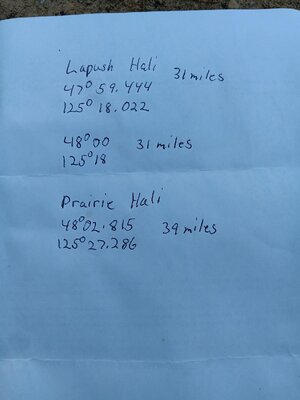 Lapush Hali 31 miles
47° 59.444
125° 18.022
48° 00 31 miles
125° 18
Prairie Hali
48° 02.815 39 miles
125° 27.286